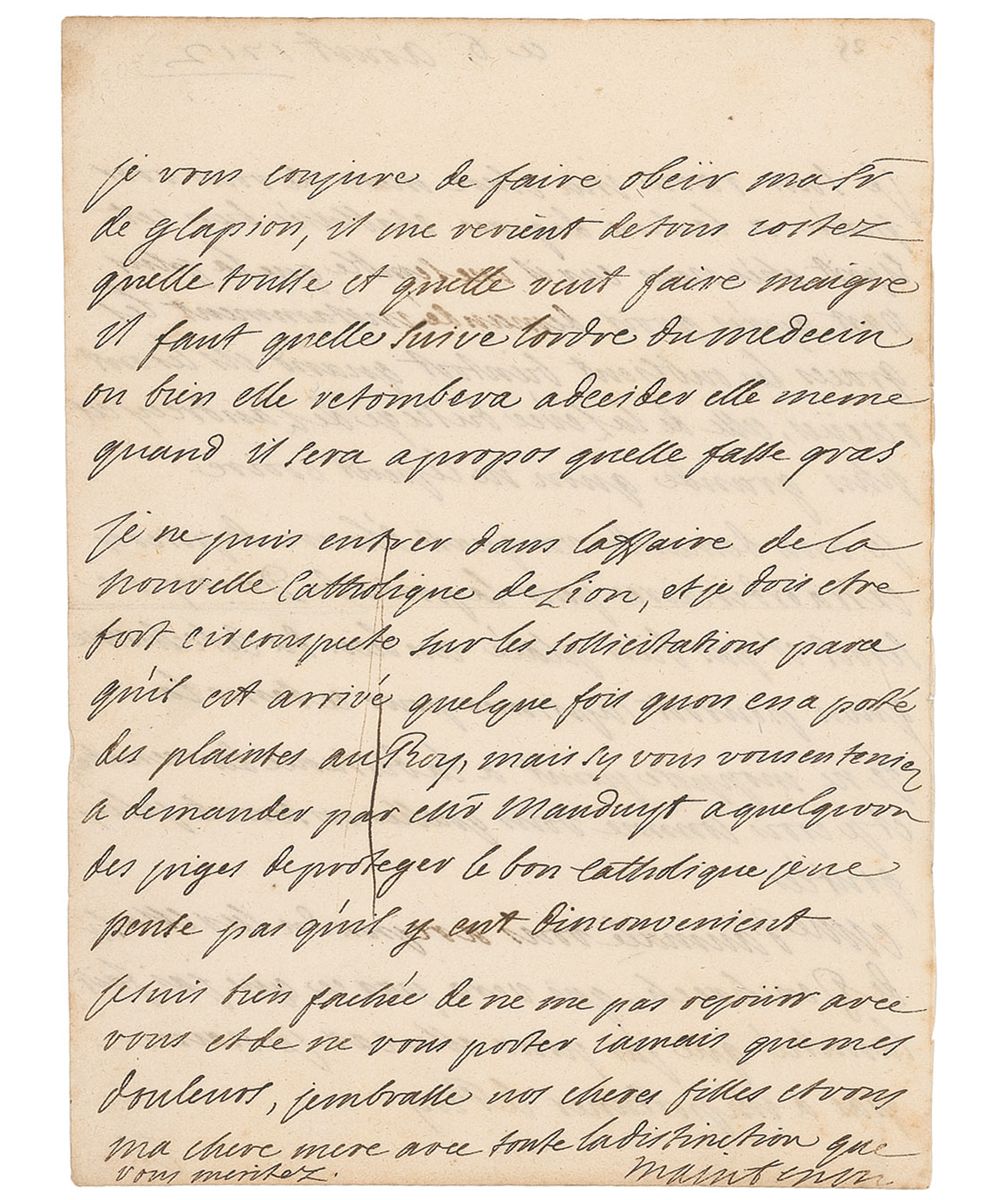 je vous conjure de faire obeïr ma sr
de glapion, il me revient detous costez
quelle tousse et quelle veut faire maigre
il faut quelle suive lordre du medecin
ou bien elle retombera a decider elle meme
quand il sera apropos quelle fasse gras
je ne puis entrer dans laffaire de la
nouvelle Catholique de Lion, et je dois etre
fort circonspecte sur les sollicitations parce
quil est arrivé quelque fois quon en a porté
des plaintes au Roy, mais sy vous vous en teniez
a demander par Mr Manduyt a quelquun
des juges deproteger le bon catholique je ne
pense pas quil y eut dinconvenient
je suis bien fachée de ne me pas rejouir avec
vous et de ne vous porter iamais que mes
douleurs, jembrasse nos cheres filles et vous
ma chere mere avec toutte la distinction que
vous meritez. Maintenon